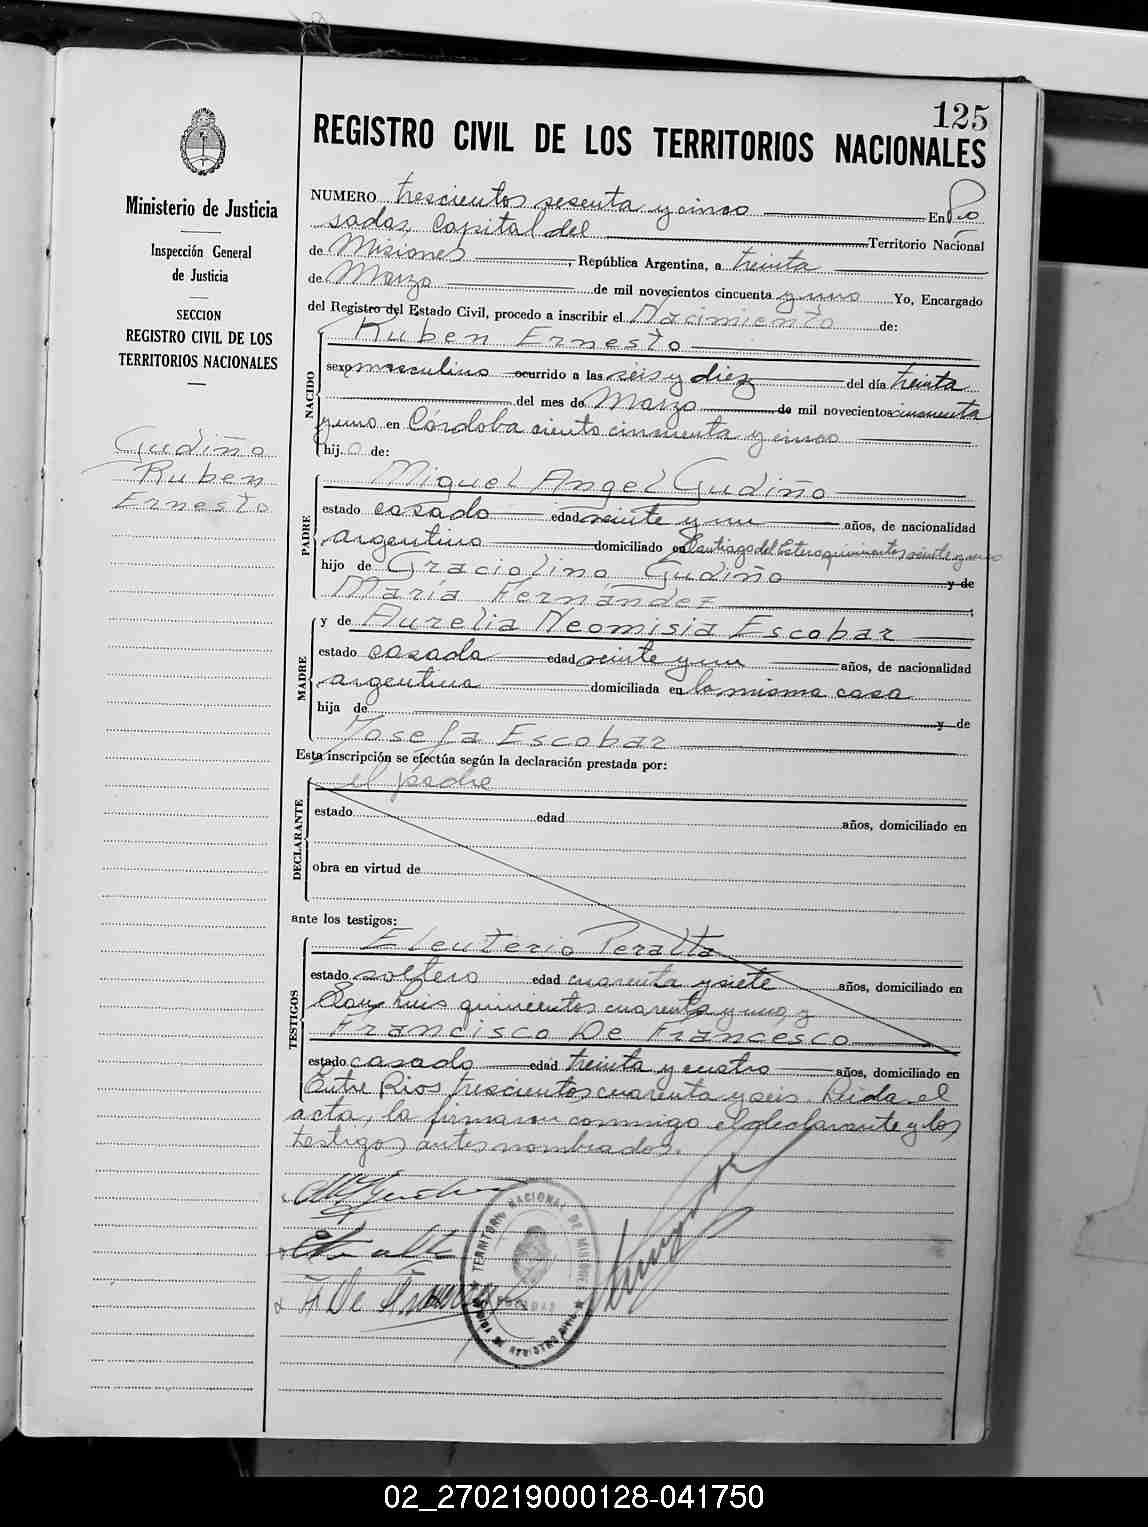 125
REGISTRO CIVIL DE LOS TERRITORIOS NACIONALES
Ministerio de Justicia
Inspección General
de Justicia
SECCION
REGISTRO CIVIL DE LOS
TERRITORIOS NACIONALES
Gudiño
Ruben
Ernesto
NUMERO trescientos sesenta y cinco En Po
sadas, Capital del Territorio Nacional
de Misiones, República Argentina, a treinta
de Marzo de mil novecientos cincuenta y uno Yo, Encargado
del Registro del Estado Civil, procedo a inscribir el Nacimiento de:
Ruben Ernesto
NACIDO
sexo masculino ocurrido a las seis y diez del día treinta
del mes de Marzo de mil novecientos cincuenta
y uno en Córdoba ciento cincuenta y cinco
hijo de:
Miguel Angel Gudiño
PADRE
estado casado edad veinte y un años, de nacionalidad
argentino domiciliado en Santiago del Estero quinientos veinte y uno
hijo de Graciolino Gudiño y de
María Fernández
MADRE
y de Aurelia Neomisia Escobar
estado casada edad veinte y un años, de nacionalidad
argentina domiciliada en la misma casa
hija de y de
Josefa Escobar
Esta inscripción se efectúa según la declaración prestada por:
el padre
DECLARANTE
estado edad años, domiciliado en
obra en virtud de
ante los testigos:
TESTIGOS
Eleuterio Peralta
estado soltero edad cuarenta y siete años, domiciliado en
San Luis quinientos cuarenta y uno, y
Francisco De Francesco
estado casado edad treinta y cuatro años, domiciliado en
Entre Rios trescientos cuarenta y seis. Leida el
acta, la firmaron conmigo el declarante y los
testigos antes nombrados.
TERRITORIO NACIONAL DE MISIONES
POSADAS
02_270219000128-041750